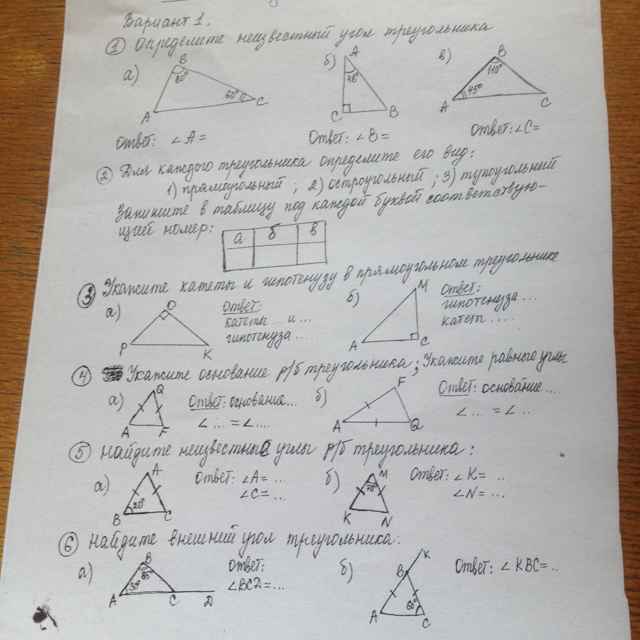 Вариант 1.
① Определите неизвестный угол треугольника
а) б) в)
B 80° 60° A C
A 48° C B
B 110° 45° A C
Ответ: ∠A= Ответ: ∠B= Ответ: ∠C=
② Для каждого треугольника определите его вид:
1) прямоугольный; 2) остроугольный; 3) тупоугольный
Запишите в таблицу под каждой буквой соответствую-
щий номер:
а б в
③ Укажите катеты и гипотенузу в прямоугольном треугольнике
а) O P K
Ответ:
катеты ... и ...
гипотенуза ...
б) M A C
Ответ:
гипотенуза ...
катеты ....
④ Укажите основание р/б треугольника; Укажите равные углы
а) Q A F
Ответ: основание...
∠ ... = ∠ ...
б) F A Q
Ответ: основание....
∠ ... = ∠ ...
⑤ Найдите неизвестные углы р/б треугольника:
а) A B 20° C
Ответ: ∠A= ...
∠C= ...
б) M 70° K N
Ответ: ∠K= ..
∠N= ...
⑥ Найдите внешний угол треугольника:
а) B 85° A C D
Ответ:
∠BCD=...
б) K B A 60° C
Ответ: ∠KBC=..